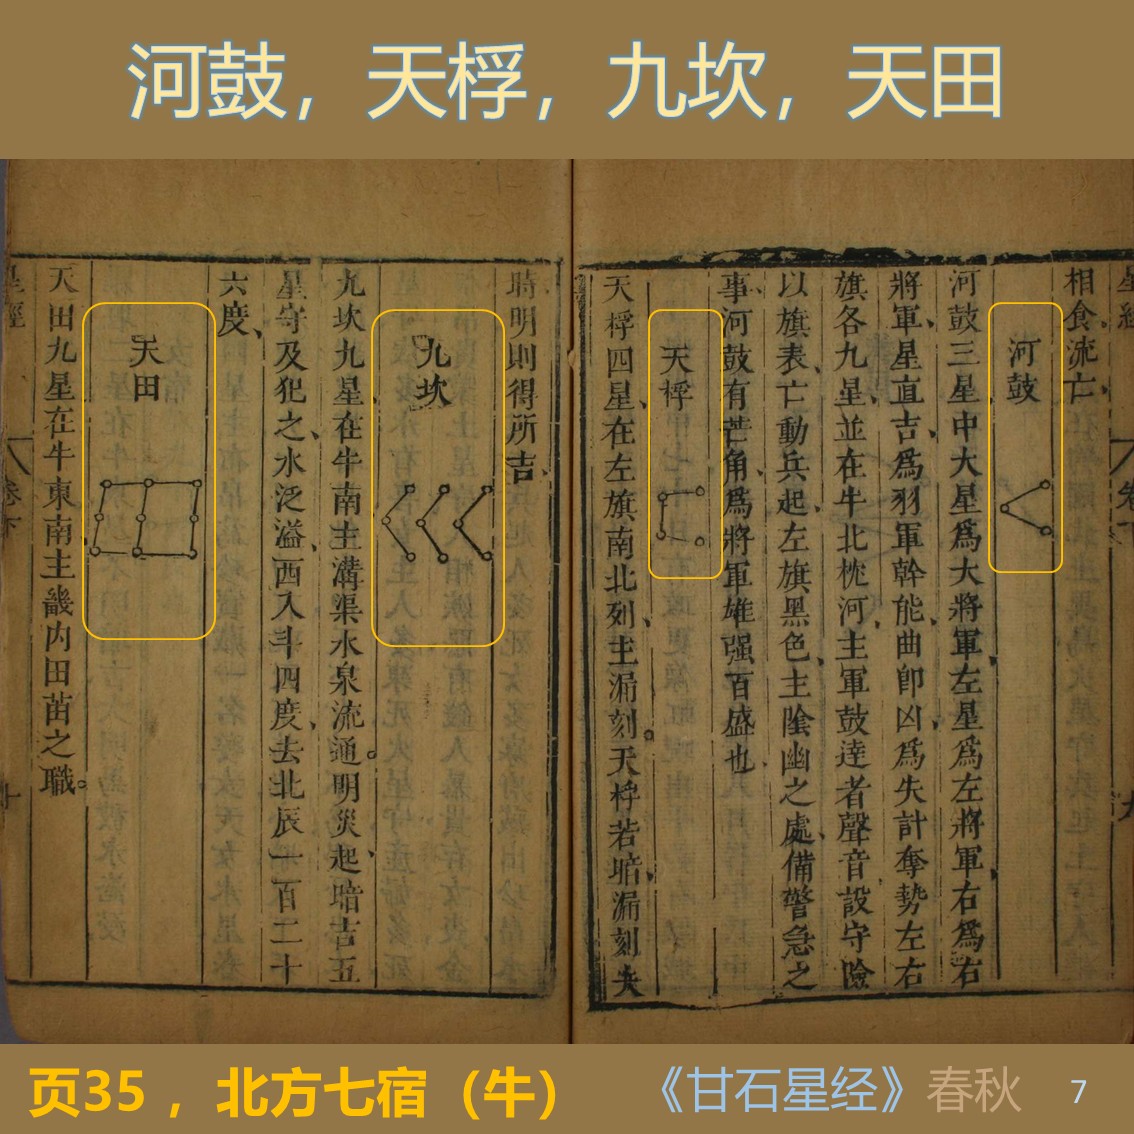 河鼓，天桴，九坎，天田
相食流亡
河鼓
河鼓三星中大星爲大將軍左星爲左將軍右爲右
將軍星直吉爲羽軍幹能曲卽凶爲失計奪勢左右
旗各九星並在牛北枕河主軍鼓達者聲音設守險
以旗表亡動兵起左旗黑色主陰幽之處備警急之
事河鼓有芒角爲將軍雄强百盛也
天桴
天桴四星在左旗南北列主漏刻天桴若暗漏刻失
時明則得所吉
九坎
九坎九星在牛南主溝渠水泉流通明災起暗吉五
星守及犯之水泛溢西入斗四度去北辰一百二十
六度
天田
天田九星在牛東南主畿内田苗之職
页35，北方七宿（牛）
《甘石星经》春秋
7